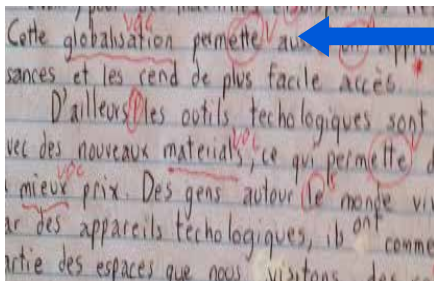 Cette globalisation permette aus
sances et les rend de plus facile accès.
D'ailleurs, les outils techologiques sont
vec des nouveaux materials, ce qui permette d
mieux prix. Des gens autour le monde viv
ar des appareils techologiques, ils ont comme
artie des espaces que nous visitons des
voc
voc
voc